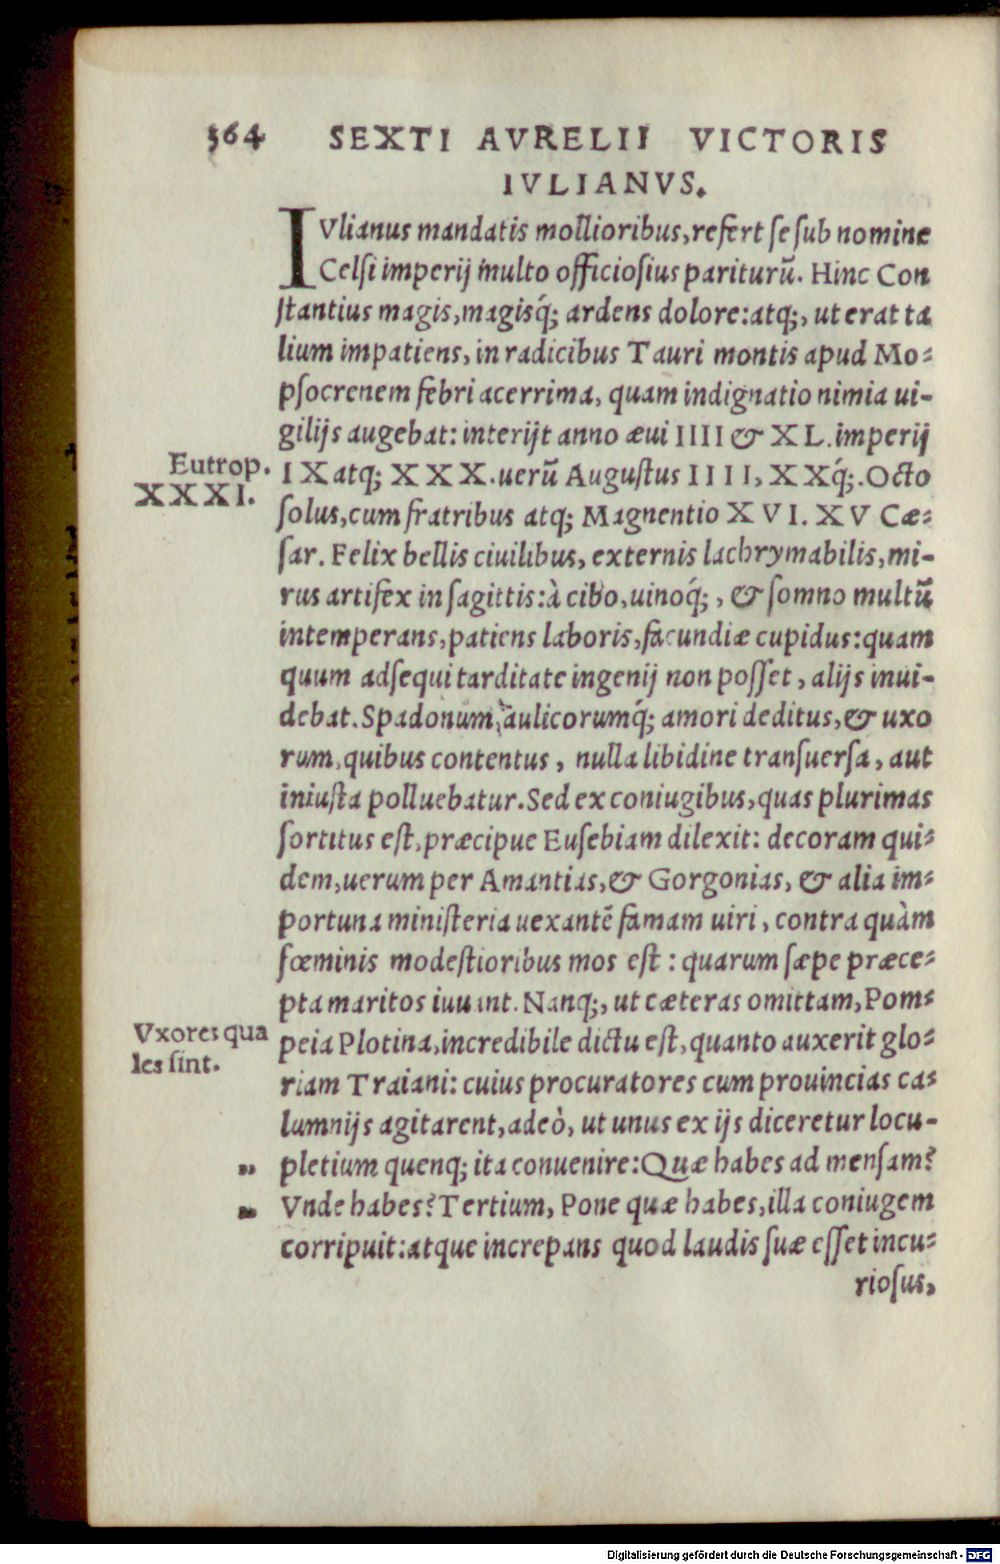 364 SEXTI AVRELII VICTORIS
IVLIANVS.
IVlianus mandatis mollioribus, refert se sub nomine
Celsi imperij multo officiosius pariturū. Hinc Con
stantius magis, magisq́; ardens dolore: atq;, ut erat ta
lium impatiens, in radicibus Tauri montis apud Mo-
psocrenem febri acerrima, quam indignatio nimia ui-
gilijs augebat: interijt anno æui IIII & XL. imperij
Eutrop. XXXI.
IX atq; XXX. uerū Augustus IIII, XXq́;. Octo
solus, cum fratribus atq; Magnentio XVI. XV Cæ-
sar. Felix bellis ciuilibus, externis lachrymabilis, mi-
rus artifex in sagittis: à cibo, uinoq́;, & somno multū
intemperans, patiens laboris, facundiæ cupidus: quam
quum adsequi tarditate ingenij non posset, alijs inui-
debat. Spadonum, aulicorumq́; amori deditus, & uxo
rum, quibus contentus, nulla libidine transuersa, aut
iniusta polluebatur. Sed ex coniugibus, quas plurimas
sortitus est, præcipue Eusebiam dilexit: decoram qui-
dem, uerum per Amantias, & Gorgonias, & alia im-
portuna ministeria uexantē famam uiri, contra quàm
fœminis modestioribus mos est: quarum sæpe præce-
pta maritos iuuant. Nanq;, ut cæteras omittam, Pom-
Vxores qua
les sint.
peia Plotina, incredibile dictu est, quanto auxerit glo-
riam Traiani: cuius procuratores cum prouincias ca-
lumnijs agitarent, adeò, ut unus ex ijs diceretur locu-
" pletium quenq; ita conuenire: Quæ habes ad mensam?
" Vnde habes? Tertium, Pone quæ habes, illa coniugem
corripuit: atque increpans quod laudis suæ esset incu-
riosus,
Digitalisierung gefördert durch die Deutsche Forschungsgemeinschaft - DFG